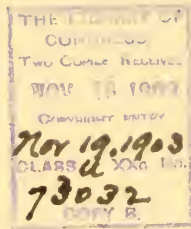 THE LIBRARY OF
CONGRESS
TWO COPIES RECEIVED
NOV 19 1903
COPYRIGHT ENTRY
Nov 19, 1903
CLASS a XXc. No.
73032
COPY B.